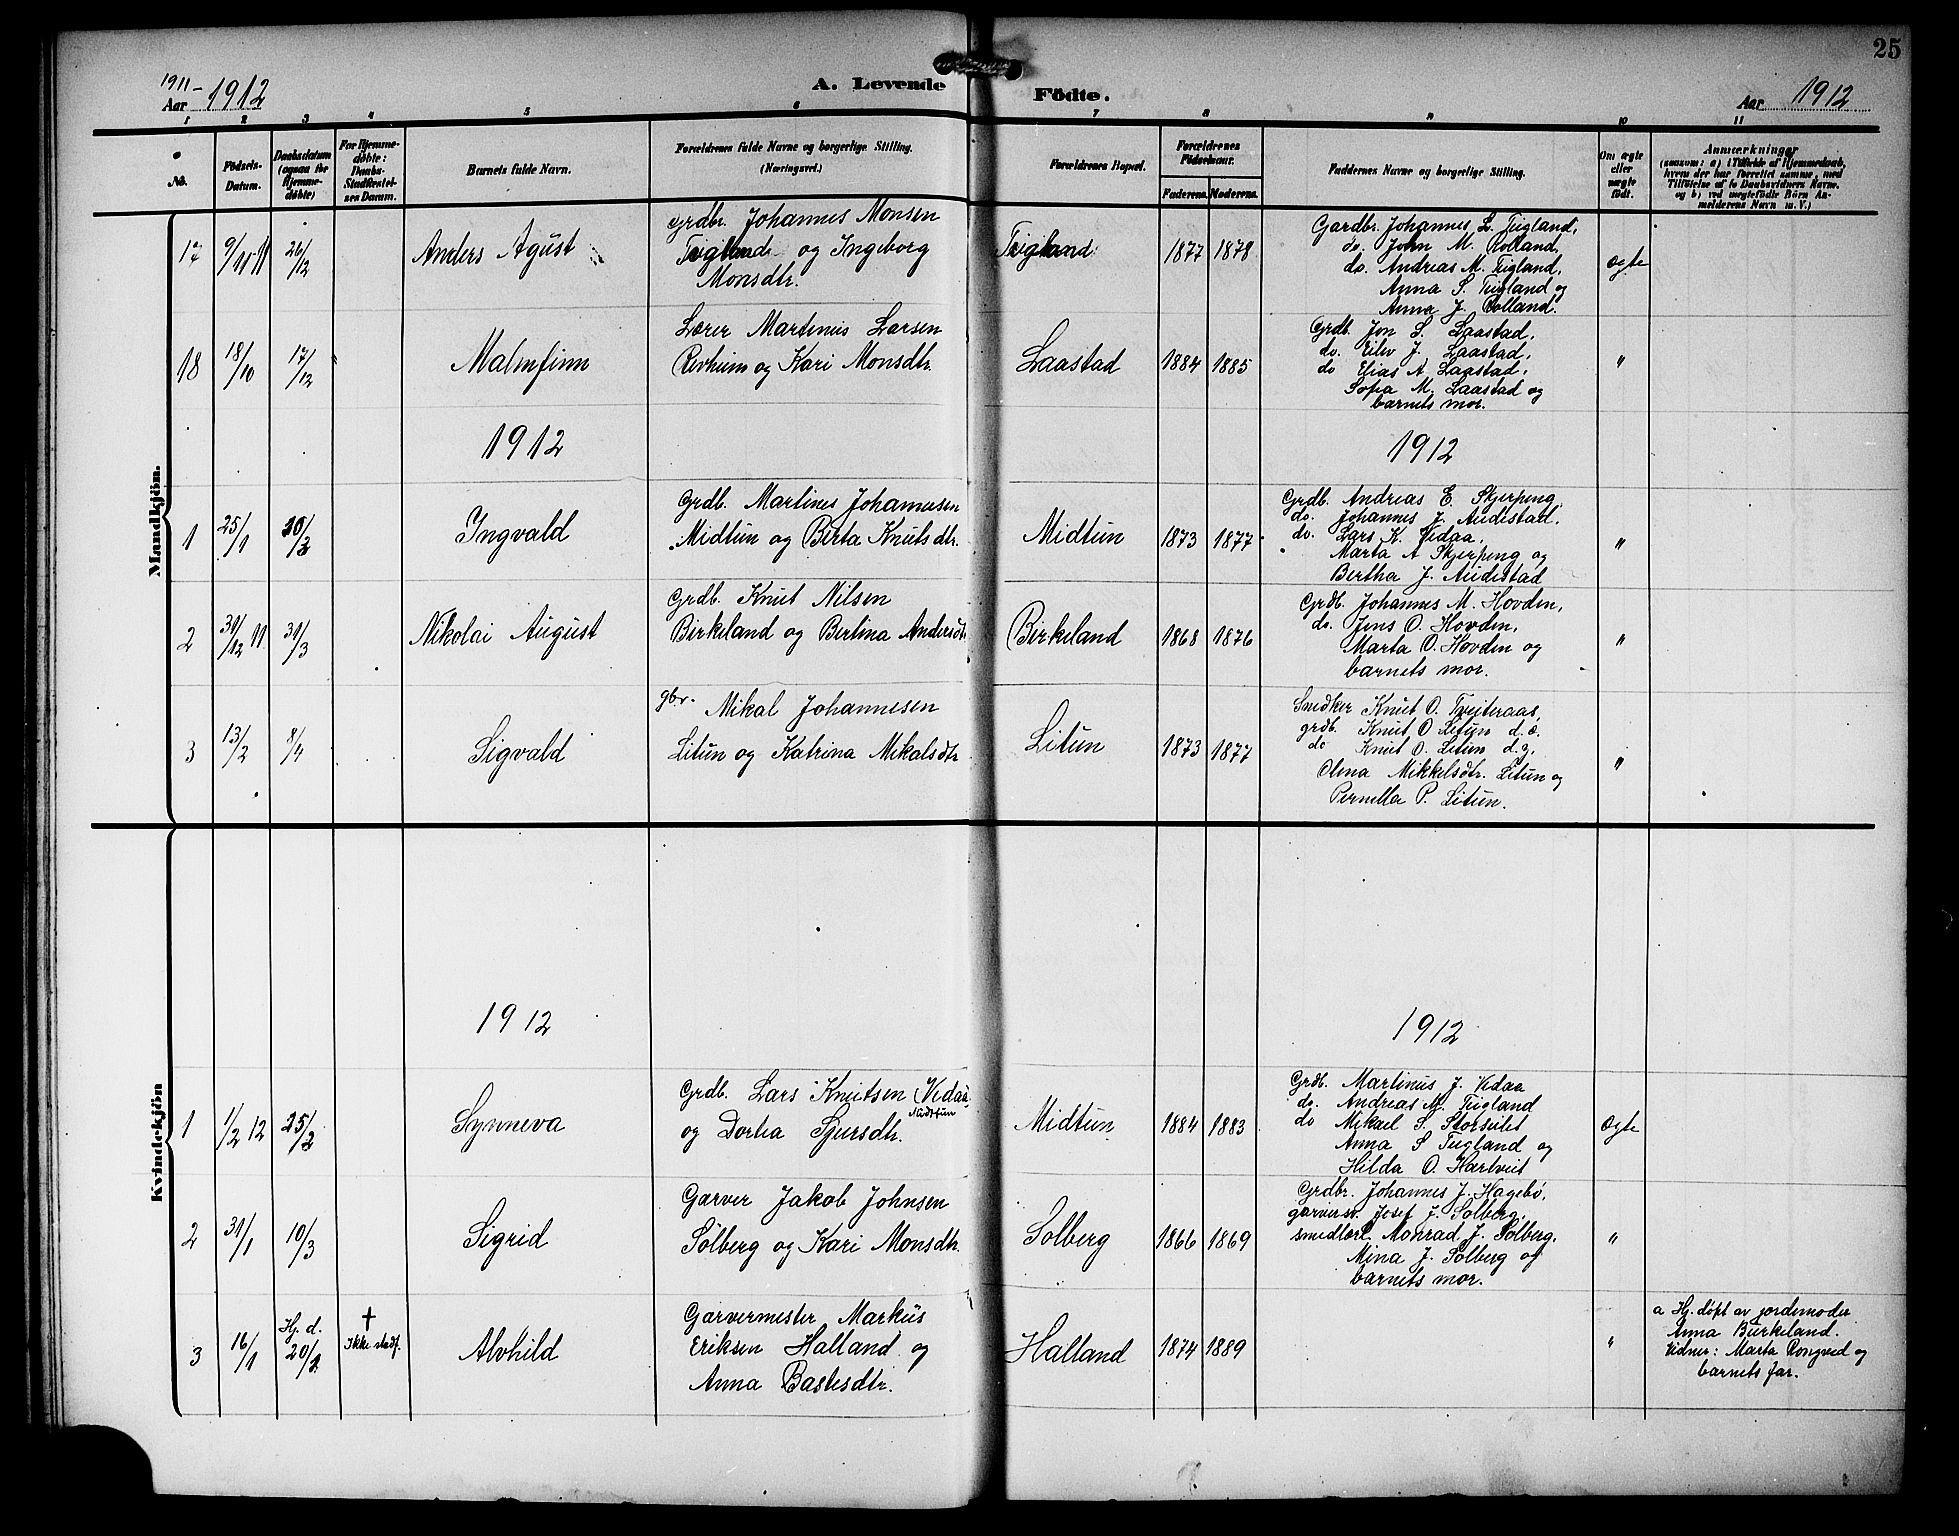 25
1911-
Aar 1912
A. Levende
Födte.
Aar 1912
1 2 3 4 5 6 7 8 9 10 11
No.
Födsels-
Datum.
Daabsdatum
(ogsaa for
Hjemme-
döbte)
For Hjemme-
döbte:
Daabs-
Stadfæstel-
ses Datum.
Barnets fulde Navn.
Forældrenes fulde Navne og borgerlige Stilling.
(Næringsvei.)
Forældrenes Bopæl.
Forældrenes
Födselsaar.
Faderens. Moderens.
Faddernes Navne og borgerlige Stilling.
Om ægte
eller
uægte
födt.
Anmærkninger
(saasom: a) i Tilfælde af Hjemmedaab,
hvem der har forrettet samme, med
Tilföielse af to Daabsvidners Navne,
og b) ved uægtefödte Börn An-
melderens Navn m. V.)
Mandkjön.
17 9/11 11 26/12
Anders Agust
Grdbr. Johannes Monsen
Teigland og Ingeborg
Monsdtr.
Teigland
1877 1878
Gardbr. Johannes L. Teigland,
do. John M. Rolland,
do. Andreas M. Teigland,
Anna S. Teigland og
Anna J. Rolland.
ægte
18 18/10 17/12 "
Malmfinn
Lærer Martinus Larsen
Revheim og Kari Monsdtr.
Laastad
1884 1885
Grdb. Jon S. Laastad,
do. Eilev J. Laastad,
do Elias A. Laastad,
Sofia M. Laastad og
barnets mor.
"
1912
1912
1 25/1
Ingvald
Grdb. Martines Johannesen
Midtun og Berta Knutsdtr.
Midtun
1873 1877
Grdb. Andreas E. Skjerping,
do. Johannes J. Audestad,
do. Lars K. Vedaa,
Marta A Skjerping og
Bertha J. Audestad
"
2 31/12 11 31/3
Nikolai August
Grdb. Knut Nilsen
Birkeland og Berlina Andersdtr
Birkeland
1868 1876
Grdb. Johannes M. Hovden,
do. Jens O. Hovden,
Marta O. Hovden og
barnets mor.
"
3 13/2 8/4
Sigvald
gbr. Mikal Johannesen
Litun og Katrina Mikalsdtr
Litun
1873 1877
Snedker Knut O. Tveiteraas,
grdb. Knut O Litun d.e.
do Knut O. Litun d.y.
Olena Mikkelsdtr. Litun og
Pernella P. Litun.
"
Kvindekjön
1912
1912
1 1/2 12 25/2
Synneva
Grdb. Lars Knutsen Vedaa
Midtun
og Dortea Sjursdtr.
Midtun
1884 1883
Grdb. Martinus J. Vedaa
do. Andreas M. Teigland
do Mikael S. Storsætet
Anna S Teigland og
Hilda O. Hartveit
Ægte
2 31/1 10/3
Sigrid
Garver Jakob Johnsen
Solberg og Kari Monsdtr.
Solberg
1866 1869
Grdbr. Johannes J. Hagebø,
garversv. Josef J. Solberg,
smedlærl. Monrad J. Solberg,
Mina J. Solberg og
barnets mor.
"
3 16/1 Hj. d.
†
Ikke stadf.
Alvhild
Garvermester Markus
Eriksen Halland og
Anna Bastesdtr.
Halland
1874 1889
"
a Hj. døpt av jordemoder
Anna Birkeland.
Vidner: Marta Rongved og
barnets far.